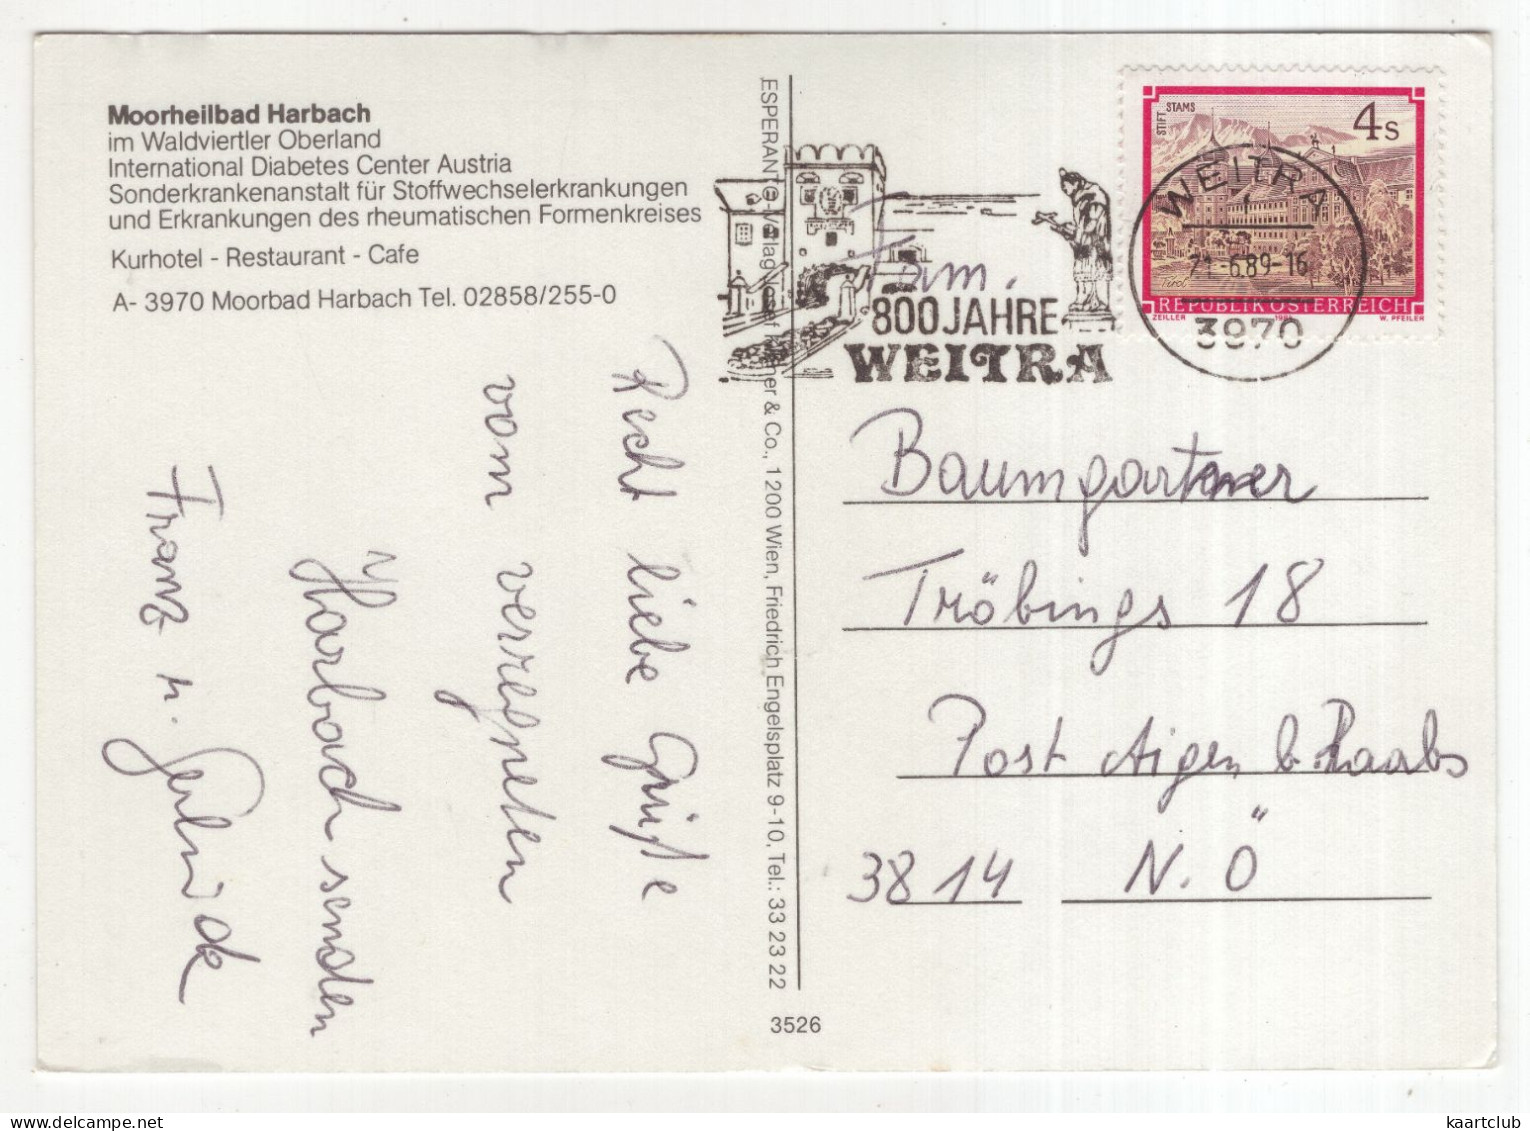 Moorheilbad Harbach
im Waldviertler Oberland
International Diabetes Center Austria
Sonderkrankenanstalt für Stoffwechselerkrankungen
und Erkrankungen des rheumatischen Formenkreises
Kurhotel - Restaurant - Cafe
A- 3970 Moorbad Harbach Tel. 02858/255-0
Recht liebe Grüße
vom verregneten
Harbach senden
Franz u.
ESPERANTO-Verlag Josef & Co., 1200 Wien, Friedrich Engelsplatz 9-10, Tel.: 33 23 22
3526
800 JAHRE
WEITRA
STIFT STAMS
4s
Tirol
REPUBLIK ÖSTERREICH
ZEILLER 1984 W. PFEILER
WEITRA
21.-6.89-16
3970
Fam.
Baumgartner
Tröbings 18
Post Aigen b. Raabs
3814 N.Ö
kaartclub